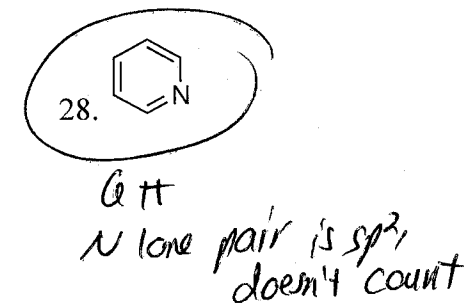 28.
N
6 π
N lone pair is sp²,
doesn't count